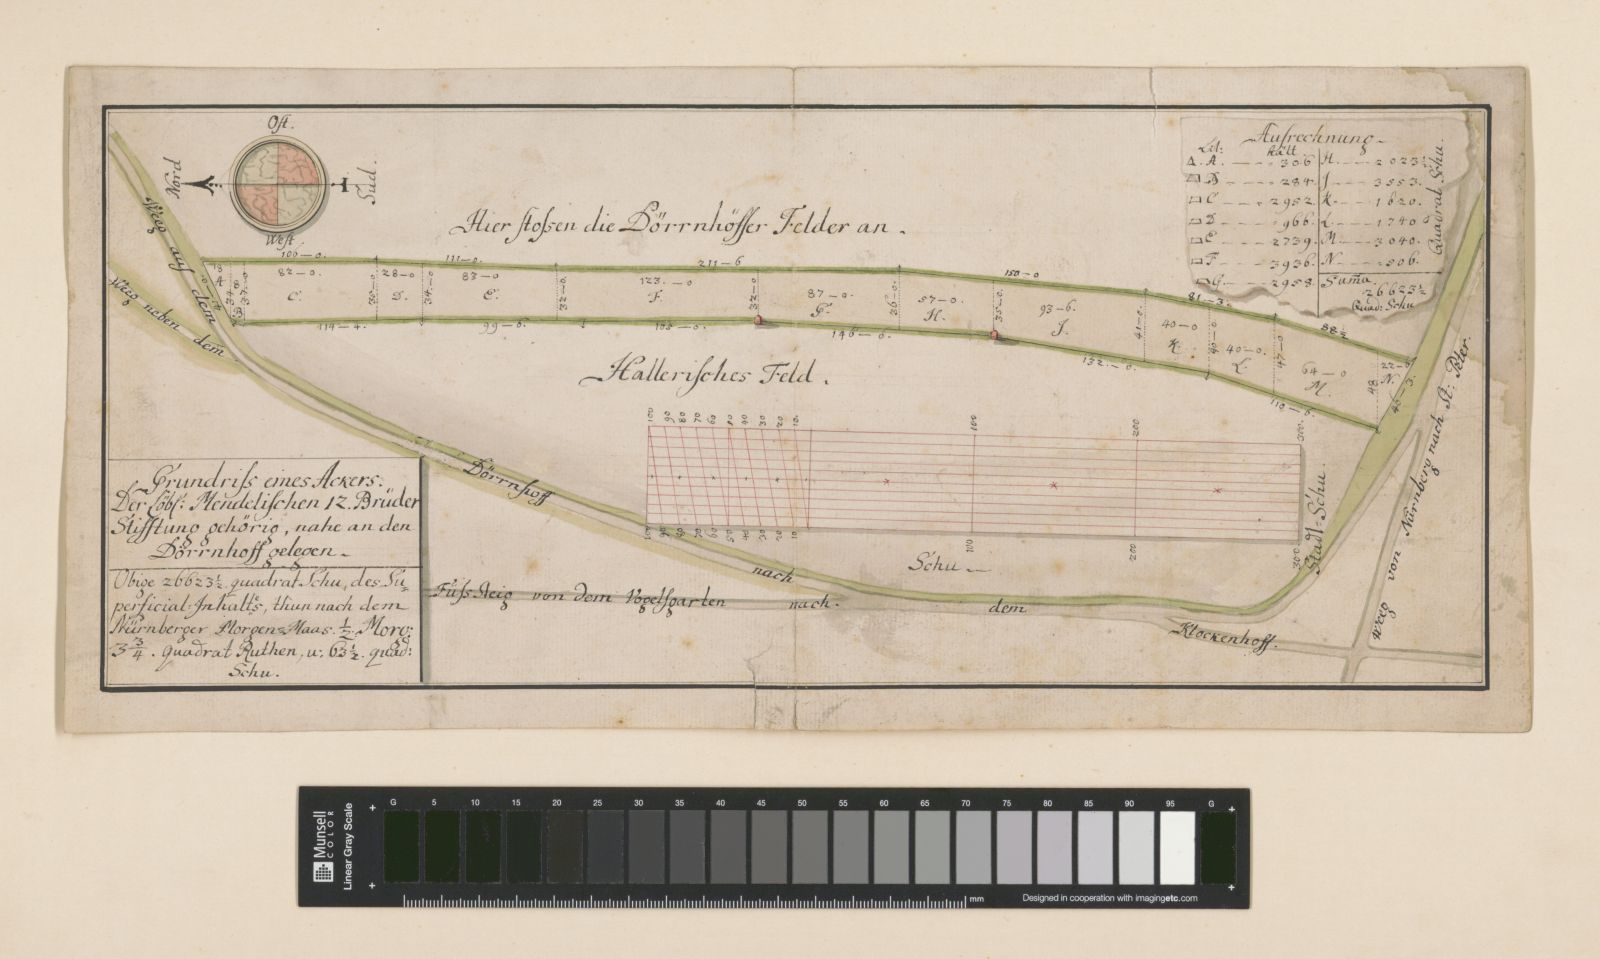 Ost.
Nord
Sud.
West.
Aufrechnung.
Lit: hält
A. 306
B. 284
C. 2952
D. 966.
E. 2739.
F. 3936.
G. 2958.
H. 2023½
J. 3553.
K. 1620.
L. 1740
M. 3040.
N. 506.
Suma.
26623½
Quad: Schu
Quadrat Schu.
Hier stoßen die Dörrnhöffer Felder an.
106—0.
111—0.
211—6
150—0
81—3.
88½
A
34—8
B
37—0.
82—0.
C.
36—0.
28—0
D.
34—0.
83—0
E.
32—0.
123.—0
F.
32—0.
87—0.
G.
36—0.
57—0.
H.
35—0.
93—6.
J.
41—0.
40—0
K.
40—0.
40—0.
L.
47—0
64—0
M.
48
22—0
N.
46—3.
114—4.
99—6.
105—0.
146—0.
132.—0.
110—6.
Hallerisches Feld.
Weeg auf dem
Weeg neben dem
Dörrnhoff nach dem Klockenhoff.
100 90 80 70 60 50 40 30 20 10. 100 200 300.
100 90 80 70 60 50 40 30 20 10 100 200 300
Schu.
Stadt-Schu.
Weeg von Nürnberg nach St: Peter.
Fuß Steig von dem Vogelsgarten nach.
Grundriß eines Ackers.
Der Löbl: Mendelischen 12. Brüder
Stifftung gehörig, nahe an den
Dörrnhoff gelegen.
Obige 26623½ quadrat Schu, des Su=
perficial-Inhalts, thun nach dem
Nürnberger Morgen-Maas. ½ Morg:
3¾. quadrat Ruthen, u: 63½. quad:
Schu.
Munsell
COLOR
Linear Gray Scale
G 5 10 15 20 25 30 35 40 45 50 55 60 65 70 75 80 85 90 95 G
mm
Designed in cooperation with imagingetc.com